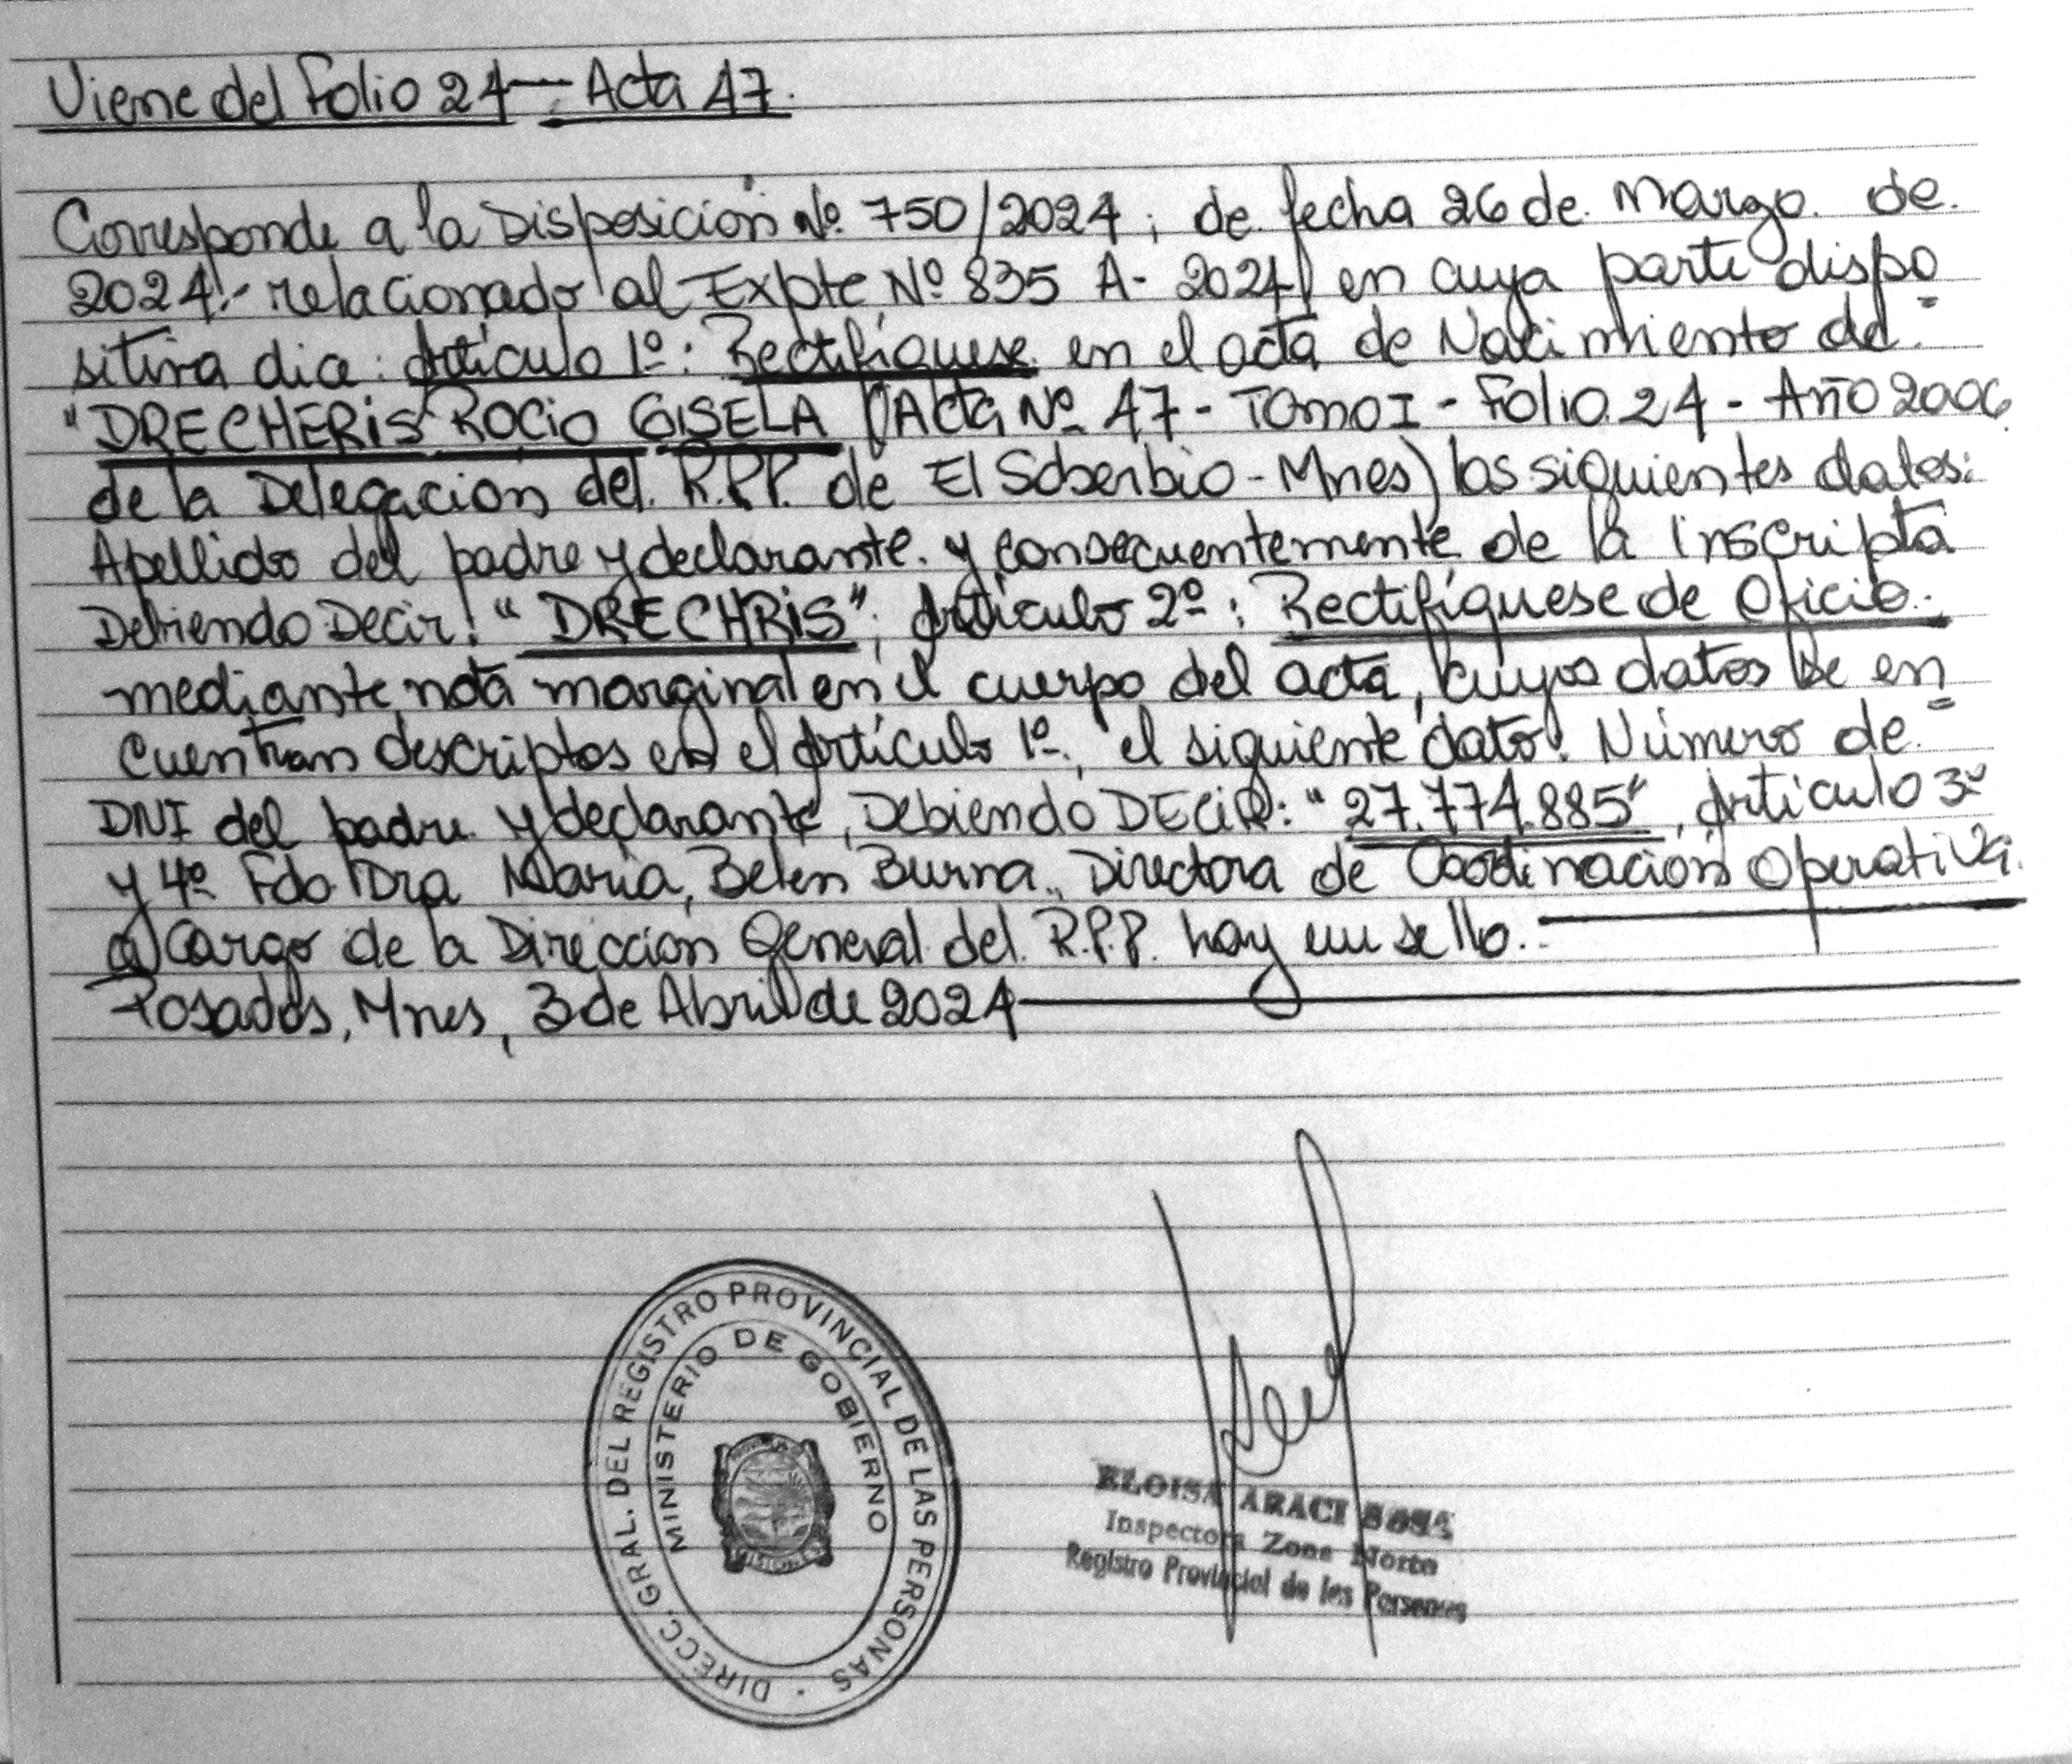 Viene del Folio 24 - Acta 47.
Corresponde a la Disposición Nº 750/2024, de fecha 26 de Marzo de
2024.- relacionado al Expte Nº 835 A- 2024 en cuya parte dispo
sitiva dice: Artículo 1º: Rectifíquese en el acta de Nacimiento de
"DRECHERIS ROCIO GISELA (Acta Nº 47 - Tomo I - Folio 24 - Año 2006
de la Delegación del R.P.P. de El Soberbio - Mnes) los siguientes datos:
Apellido del padre y declarante y consecuentemente de la inscripta
Debiendo Decir: "DRECHRIS"; Artículo 2º: Rectifíquese de Oficio
mediante nota marginal en el cuerpo del acta, cuyos datos se en
cuentran descriptos en el Artículo 1º, el siguiente dato: Número de
DNI del padre y declarante, Debiendo DECIR: "27.774.885", Artículo 3º
y 4º Fdo Dra María Belen Burna, Directora de Coordinación Operativa
a cargo de la Dirección General del R.P.P. hay un sello.-
Posadas, Mnes, 3 de Abril de 2024
DIRECC. GRAL. DEL REGISTRO PROVINCIAL DE LAS PERSONAS
MINISTERIO DE GOBIERNO
MISIONES
ELOISA ARACI
Inspectora Zona Norte
Registro Provincial de las Personas